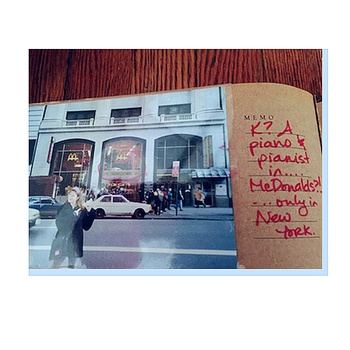 MEMO
K? A
piano &
pianist
in....
McDonalds?!
...only in
New
York.